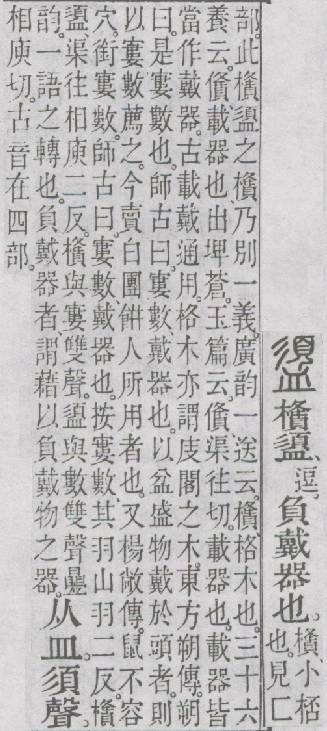 盨 㯯盨、逗。負戴器也。㯯小桮
也。見匚
部。此㯯盨之㯯、乃別一義。廣韵一送云。㯯、格木也。三十六
養云。載器也。出埤蒼。玉篇云。渠往切。載器也。載器皆
當作戴器。古載戴通用。格木亦謂庋閣之木。東方朔傳。朔
曰。是寠數也。師古曰。寠數、戴器也。以盆盛物戴於頭者、則
以寠數薦之。今賣白團餅人所用者也。又楊敞傳。鼠不容
穴。銜寠數。師古曰。寠數、戴器也。按寠數、其羽山羽二反。㯯
盨、渠往相庾二反。㯯與寠雙聲。盨與數雙聲㬪
韵。一語之轉也。負戴器者、謂藉以負戴物之器。从皿。須聲。
相庾切。古音在四部。